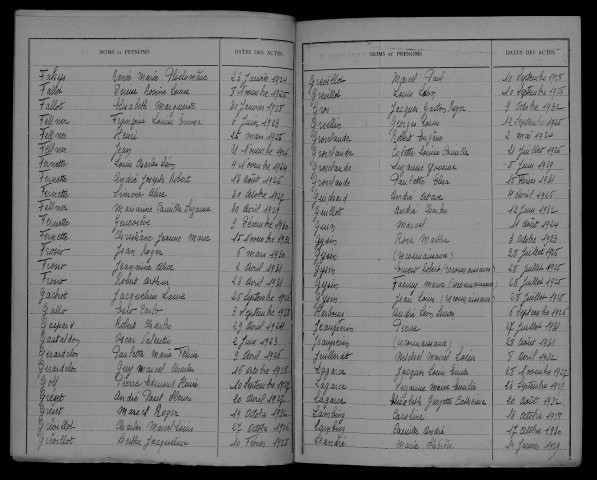 NOMS et PRÉNOMS DATES DES ACTES
Fahys Renée Marie Philomène 23 Janvier 1924
Fallot Jenne Rosine Louise 5 Novembre 1925
Fallot Elisabeth Marguerite 30 Janvier 1928
Fellner Françoise Louise Emma Juin 1923
Fellner Henri mars 1925
Fellner Jean Novembre 1926
Fernette Louis Charles Léon 4 Novembre 1924
Fernette André Joseph Robert 18 Août 1926
Fernette Simone Alice 30 Octobre 1927
Fellner Marianne Camille Suzanne 30 Avril 1929
Fernette Geneviève 9 Décembre 1930
Fernette Christiane Jeanne Marie 15 Novembre 1932
Jean Roger 8 mars 1930
Jeannine Alice 2 Avril 1931
Robert Arthur 23 Avril 1931
Gachot Jacqueline Laure 25 Septembre 1926
Gallo Carlo 3 Septembre 1928
Gaspard Robert Charles 29 Avril 1924
Gastaldon Oscar Valentin 2 Juin 1923
Girardclos Paulette Marie 9 Avril 1926
Girardclos Guy Marcel Charles 15 Octobre 1928
Goll Pierre Edmond Henri 10 Septembre 1927
Grévet André Paul Pierre 20 Avril 1927
Grévet Marcel Roger 19 Octobre 1932
Grévillot Charles Marcel Louis 27 Octobre 1926
Grévillot Berthe Jacqueline 10 Février 1928
NOMS et PRÉNOMS DATES DES ACTES
Grévillot Marcel Paul 10 Septembre 1928
Grévillot Louis Léon 10 Septembre 1928
Gros Jacques Gaston Roger 9 Octobre 1932
Georges Louis 12 Septembre 1925
Grosclaude Robert Eugène 2 mai 1924
Grosclaude Colette Louise Camille 21 Juillet 1926
Grosclaude Suzanne 5 Juin 1929
Grosclaude Paulette 15 Février 1931
Guichard André 4 Avril 1925
Guillot André 12 Juin 1932
Guin Marcel Août 1924
Gysin Rosa Martha 3 Octobre 1923
Gysin (reconnaissance) 28 Juillet 1925
Gysin Robert (reconnaissance) 28 Juillet 1925
Gysin Fanny Marie (reconnaissance) 28 Juillet 1925
Gysin Jean Louis (reconnaissance) 28 Juillet 1925
André Léon 6 Septembre 1926
Jeanperrin Pierre 27 Juillet 1931
Jeanperrin (reconnaissance) 28 Août 1931
Juillerat Marcel Louis 8 Avril 1932
Lagarce Jacques Louis 28 Novembre 1927
Lagarce Suzanne Marie 16 Septembre 1929
Lagarce Elisabeth Georgette Catherine 20 Août 1932
Lambing Caroline 18 Octobre 1928
Lambing Camille André 17 Octobre 1930
Marie Janvier 1929